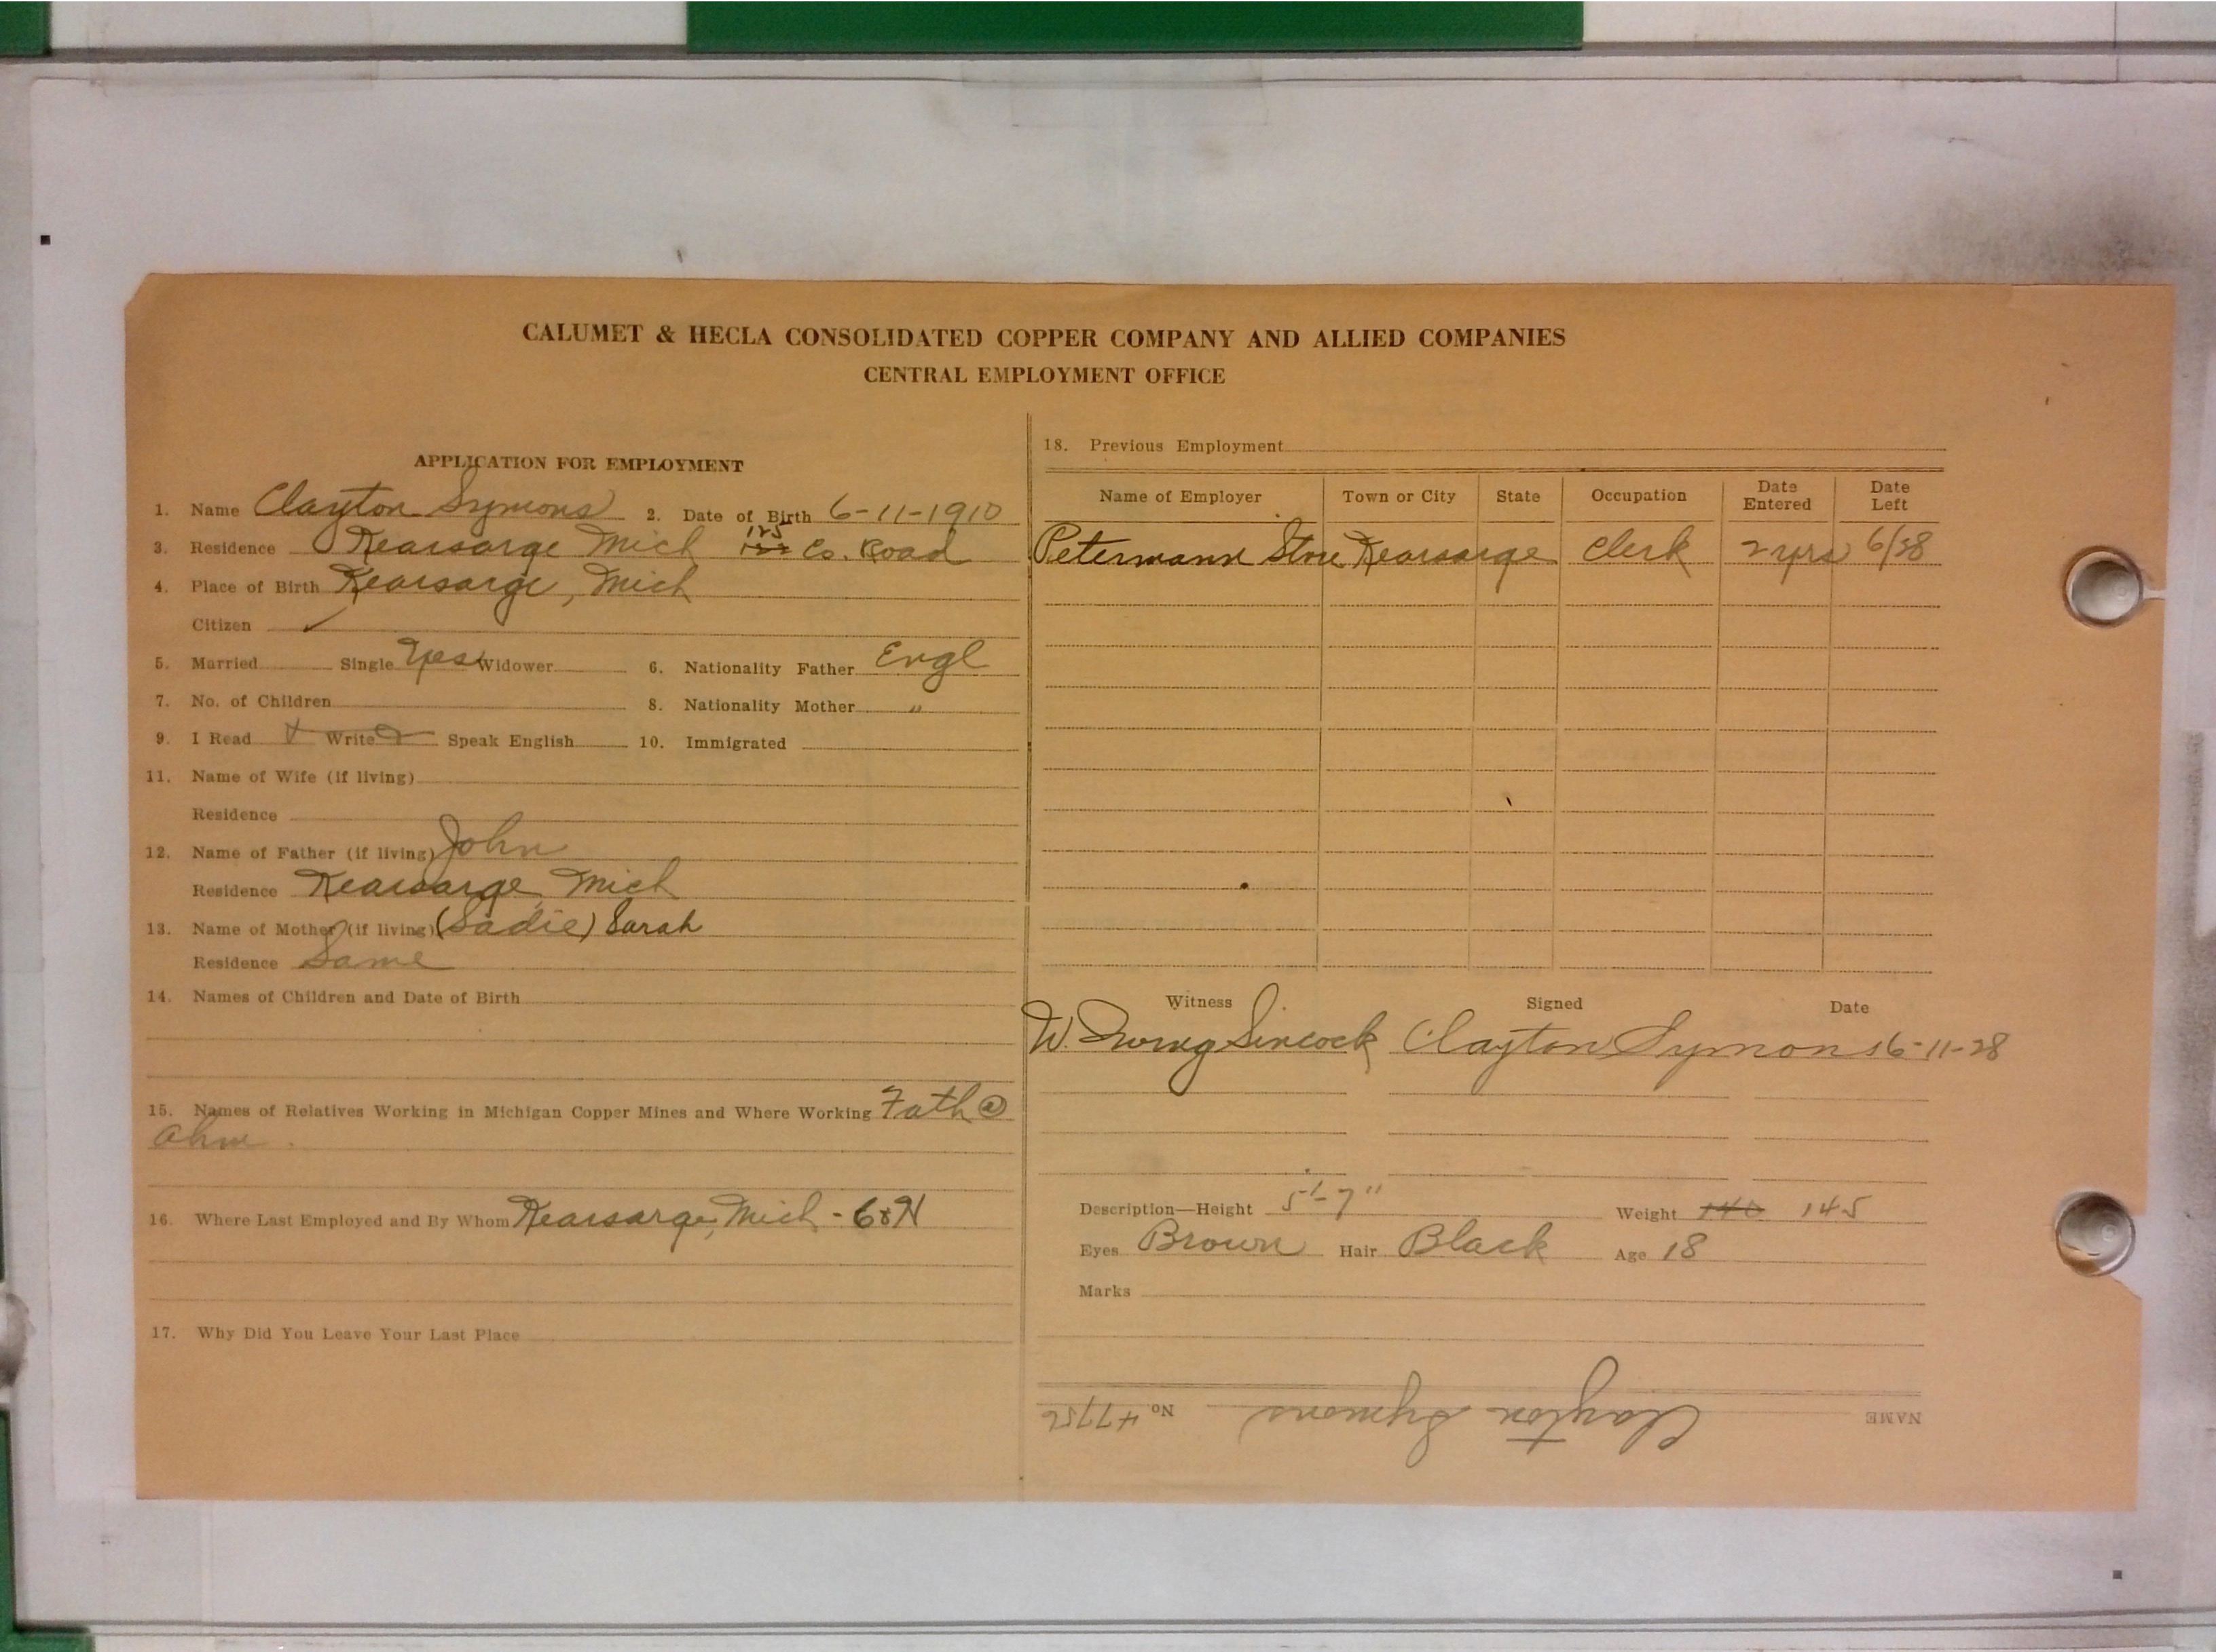 CALUMET & HECLA CONSOLIDATED COPPER COMPANY AND ALLIED COMPANIES
CENTRAL EMPLOYMENT OFFICE
APPLICATION FOR EMPLOYMENT
1. Name Clayton Symons 2. Date of Birth 6-11-1910
3. Residence Kearsarge Mich 125 Co. Road
4. Place of Birth Kearsarge, Mich
Citizen ✓
5. Married Single Yes Widower 6. Nationality Father Engl
7. No. of Children 8. Nationality Mother "
9. I Read Write Speak English 10. Immigrated
11. Name of Wife (if living)
Residence
12. Name of Father (if living) John
Residence Kearsarge, Mich
13. Name of Mother (if living) (Sadie) Sarah
Residence Same
14. Names of Children and Date of Birth
15. Names of Relatives Working in Michigan Copper Mines and Where Working Fath @
Ahm.
16. Where Last Employed and By Whom Kearsarge, Mich -
17. Why Did You Leave Your Last Place
18. Previous Employment
Name of Employer Town or City State Occupation Date Entered Date Left
Petermann Store Kearsarge Clerk 2 yrs 6/28
Witness Signed Date
W. Sincock Clayton Symons 6-11-28
Description—Height 5'-7" Weight 140 145
Eyes Brown Hair Black Age 18
Marks
NAME Clayton Symons No 47756